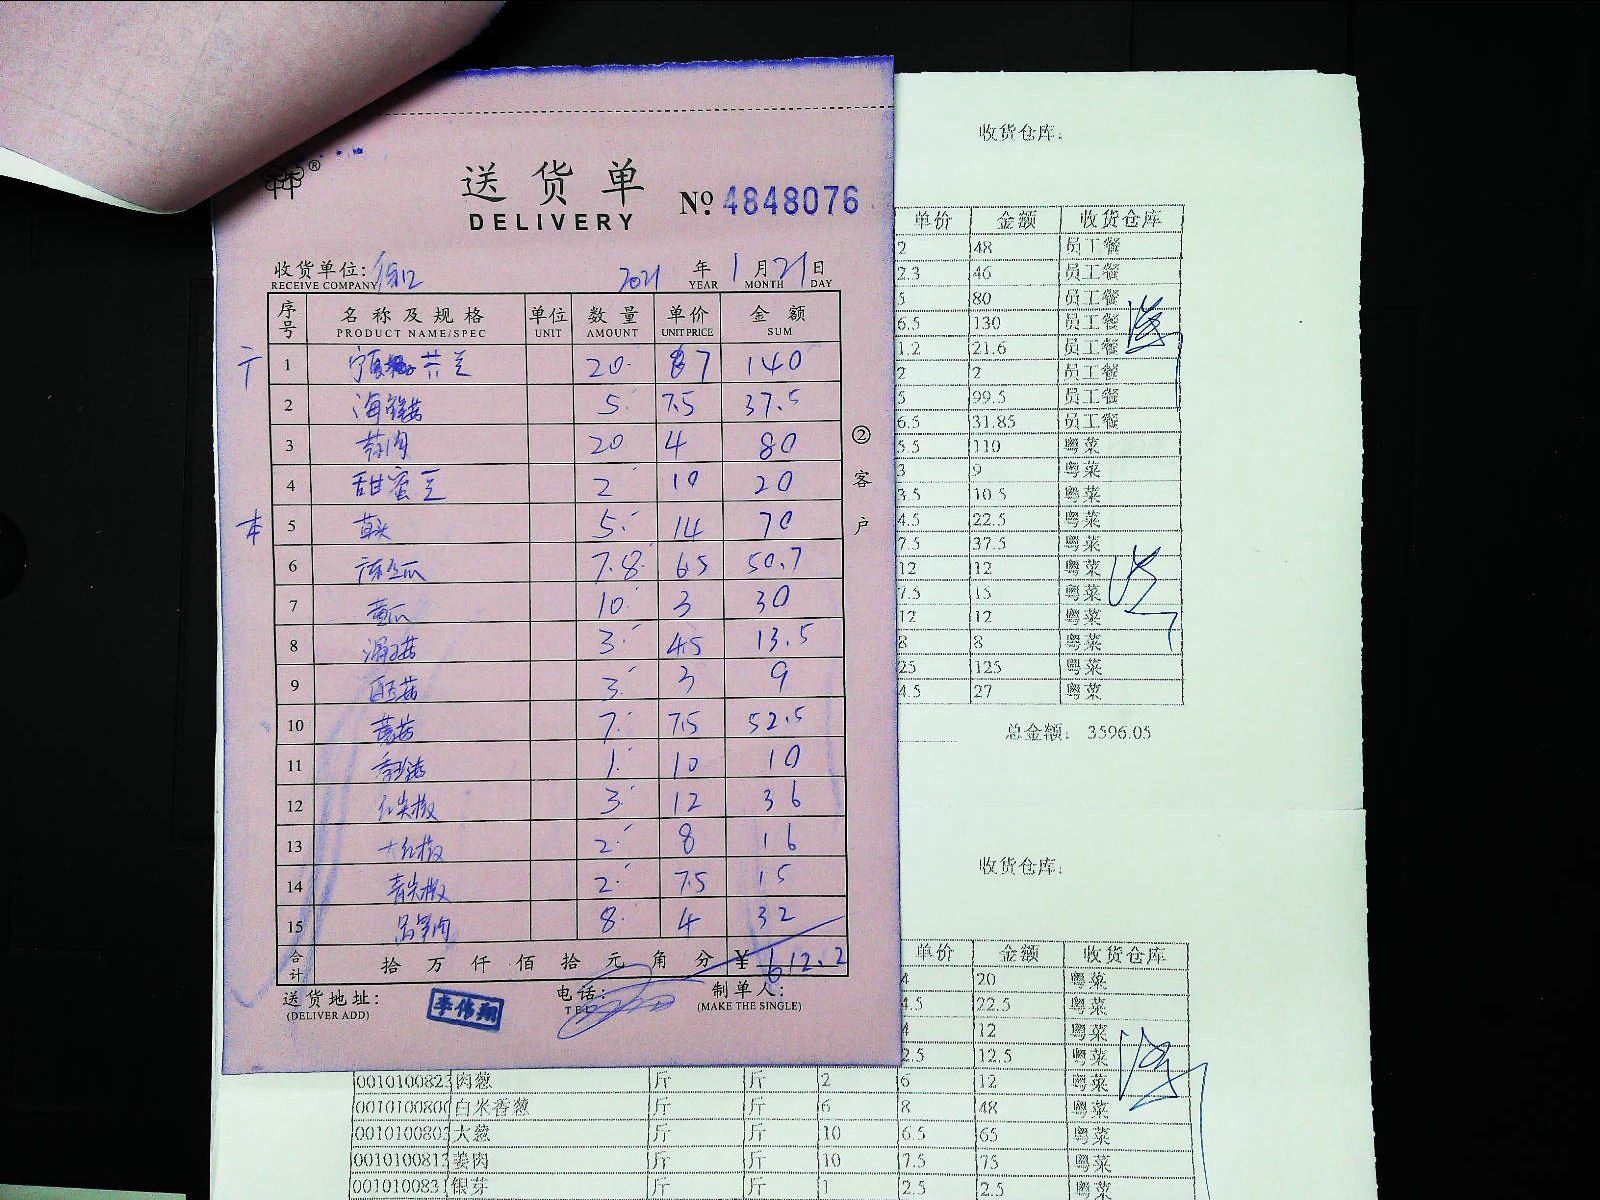 收货仓库:
送货单
DELIVERY
№ 4848076
收货单位:
RECEIVE COMPANY
2021 年 1 月 21 日
YEAR MONTH DAY
序号 名称及规格 单位 数量 单价 金额
PRODUCT NAME/SPEC UNIT AMOUNT UNIT PRICE SUM
1 20 7 140
2 海鲜菇 5 7.5 37.5
3 20 4 80
4 甜蜜豆 2 10 20
5 草头 5 14 70
6 7.8 6.5 50.7
7 黄瓜 10 3 30
8 3 4.5 13.5
9 3 3 9
10 7 7.5 52.5
11 1 10 10
12 红尖椒 3 12 36
13 大红椒 2 8 16
14 青尖椒 2 7.5 15
15 8 4 32
合计 拾 万 仟 佰 拾 元 角 分 ¥ 612.2
送货地址:
(DELIVER ADD)
李伟翔
电话:
TEL
制单人:
(MAKE THE SINGLE)
②客户
单价 金额 收货仓库
2 48 员工餐
2.3 46 员工餐
5 80 员工餐
6.5 130 员工餐
1.2 21.6 员工餐
2 2 员工餐
5 99.5 员工餐
6.5 31.85 员工餐
5.5 110 粤菜
3 9 粤菜
3.5 10.5 粤菜
4.5 22.5 粤菜
7.5 37.5 粤菜
12 12 粤菜
7.5 15 粤菜
12 12 粤菜
8 8 粤菜
25 125 粤菜
4.5 27 粤菜
总金额: 3596.05
收货仓库:
单价 金额 收货仓库
4 20 粤菜
4.5 22.5 粤菜
4 12 粤菜
2.5 12.5 粤菜
001010082 肉葱 斤 斤 2 6 12 粤菜
001010080 白米香葱 斤 斤 6 8 48 粤菜
001010080 大葱 斤 斤 10 6.5 65 粤菜
001010081 姜肉 斤 斤 10 7.5 75 粤菜
001010083 银芽 斤 斤 1 2.5 2.5 粤菜